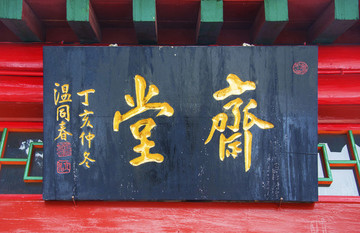 齋堂
丁亥仲冬
温同春